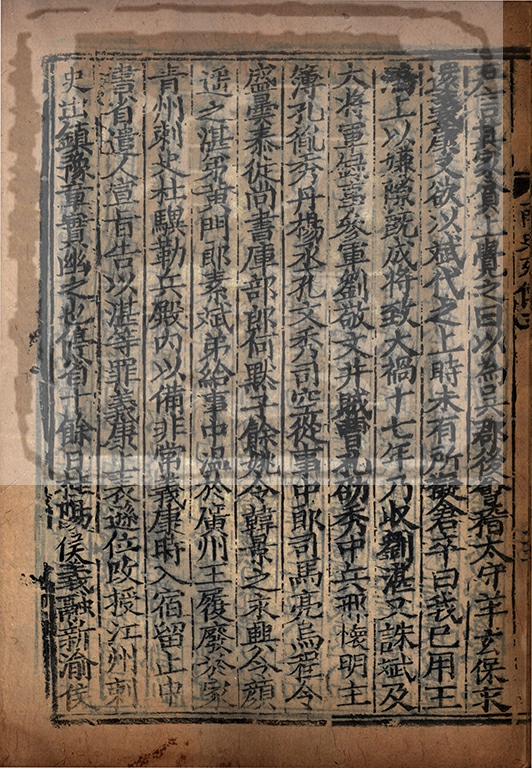 家貧上覺之曰以為吳郡後會稽太守羊玄保求
還義康又欲以斌代之上時未有所擬倉卒曰我已用王
鴻上以嫌隙既成將致大禍十七年乃收劉湛又誅斌及
大將軍錄事參軍劉敬文并賊曹孔邵秀中兵邢懷明主
簿孔胤秀丹楊丞孔文秀司空從事中郎司馬亮烏程令
盛曇泰徙尚書庫部郎何默子餘姚令韓景之永興令顏
遥之湛弟黃門郎素斌弟給事中温於廣州王履廢於家
青州刺史杜驥勒兵殿内以備非常義康時入宿留止中
書省遣人宣旨告以湛等罪義康上表遜位改授江州刺
史出鎮豫章實幽之也停省十餘日桂陽侯義融新渝侯